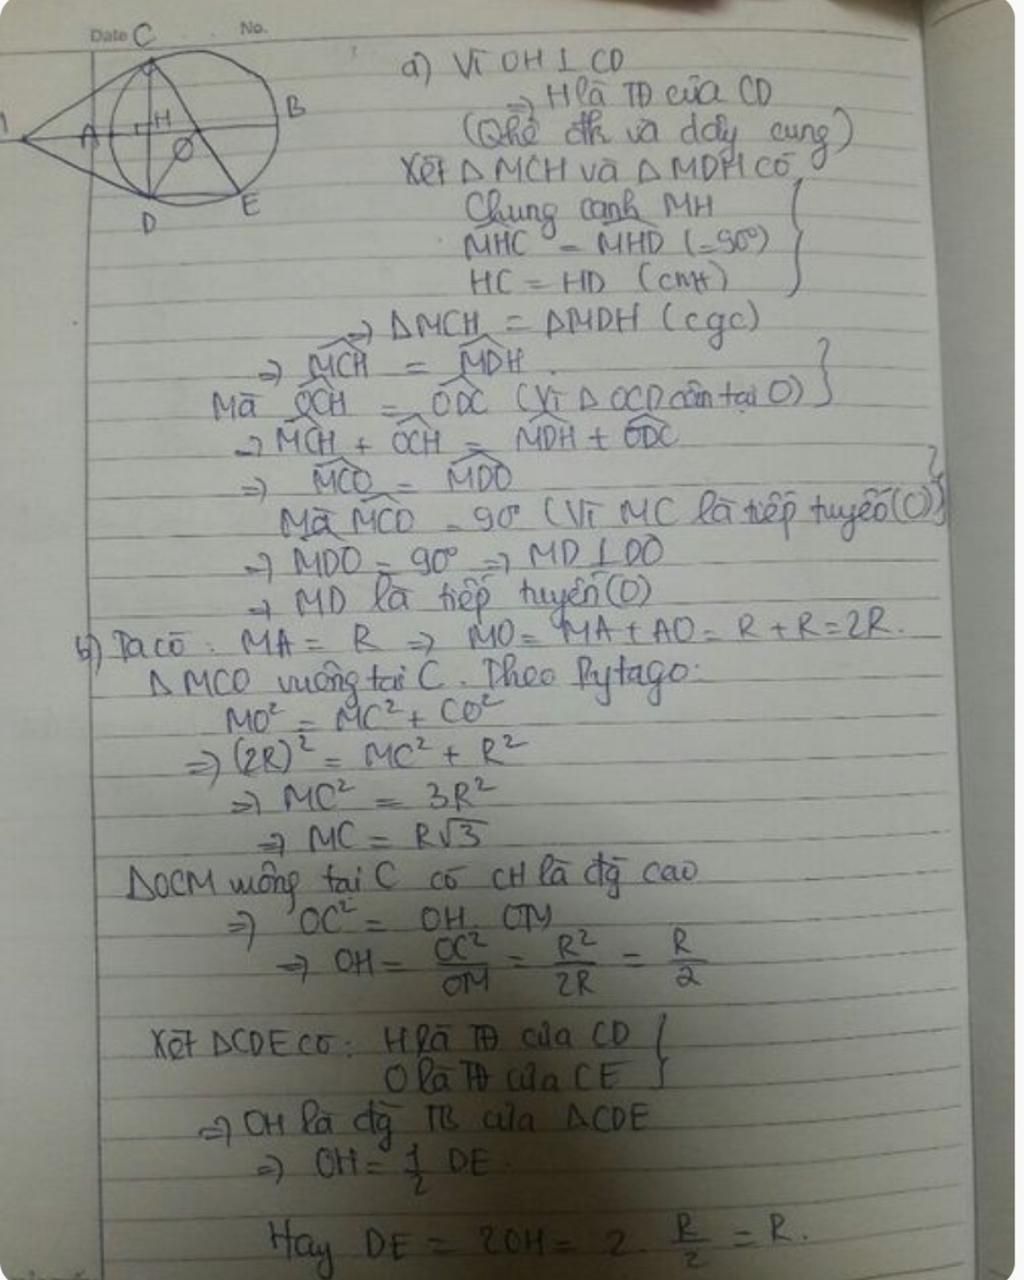 Date
No.
C
A
H
B
O
D
E
a) Vì OH ⊥ CD
=> H là TĐ của CD
(Qhệ đk và dây cung)
Xét Δ MCH và Δ MDH có
Chung cạnh MH
MHC = MHD (=90°)
HC = HD (cmt)
=> ΔMCH = ΔMDH (cgc)
=> MCH = MDH.
Mà OCH = ODC (Vì Δ OCD cân tại O)
=> MCH + OCH = MDH + ODC
=> MCO = MDO
Mà MCO = 90° (Vì MC là tiếp tuyến (O))
=> MDO = 90° => MD ⊥ DO
=> MD là tiếp tuyến (O)
b) Ta có: MA = R => MO = MA + AO = R + R = 2R.
Δ MCO vuông tại C. Theo Pytago:
MO² = MC² + CO²
=> (2R)² = MC² + R²
=> MC² = 3R²
=> MC = R√3
ΔOCM vuông tại C có CH là đg cao
=> OC² = OH. OM
=> OH = OC²/OM = R²/2R = R/2
Xét ΔCDE có: H là TĐ của CD
O là TĐ của CE
=> OH là đg TB của ΔCDE
=> OH = 1/2 DE.
Hay DE = 2OH = 2. R/2 = R.